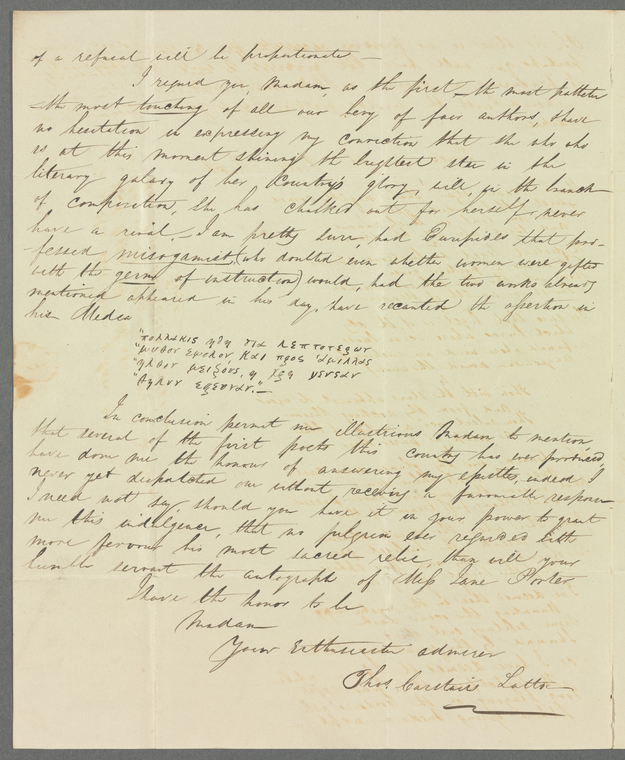 of a refusal will be proportionate —
I regard you, Madam, as the first — the most pathetic
the most touching of all our bevy of fair authors, I have
no hesitation in expressing my conviction that she who
is at this moment shining the brightest star in the
literary galaxy of her Country's glory, will, in the branch
of composition, she has chalked out for herself never
have a rival. I am pretty sure, had Euripides that pro-
fessed misogamist (who doubted even whether women were gifted
with the germs of instruction) would, had the two works already
mentioned appeared in his day, have recanted the assertion in
his Medea
"πολλακις ηδη δια λεπτοτερων
"μυθων εμολον, και προς αμιλλας
"ηλθον μειζους, η χρη γενεαν
"θηλυν ερευναν." —
In conclusion permit me illustrious Madam, to mention
that several of the first poets this country has ever produced,
have done me the honour of answering my epistles, indeed I
never yet dispatched one without receiving a favourable response
I need not say, should you have it in your power to grant
me this indulgence, that no pilgrim ever regarded with
more fervour his most sacred relic, than will your
humble servant the autograph of Miss Jane Porter
I have the honor to be
Madam
Your Enthusiastic admirer
Thos. Carstairs Latto